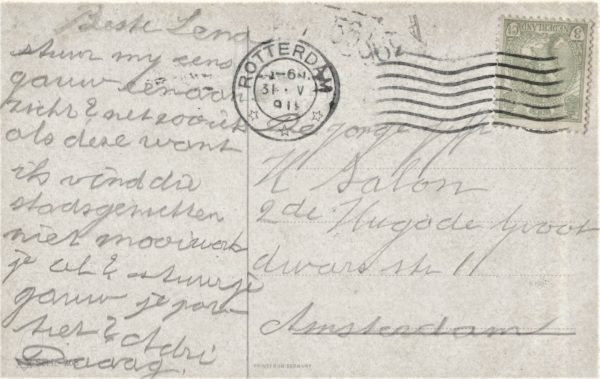 Beste Lena
stuur my eens
gauw een aan
zicht & net zoo iets
als deze want
ik vind die
stadsgezichten
niet mooi werk
je al & stuur je
gauw je por
tret & Adri
Daaag.
ROTTERDAM
31 V
911
NEDERLAND
H Salon
2de Hugo de Groot
dwars str 11
Amsterdam
PRINTED IN GERMANY